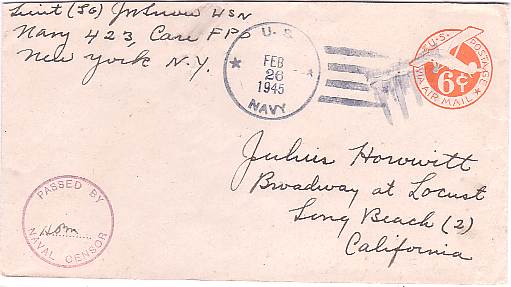 Lieut (JG) USN
Navy 423, Care FPO
New York N.Y.
U.S.
FEB
26
1945
NAVY
U.S. POSTAGE
6¢
VIA AIR MAIL
Julius Horwitt
Broadway at Locust
Long Beach (2)
California
PASSED BY
NAVAL CENSOR